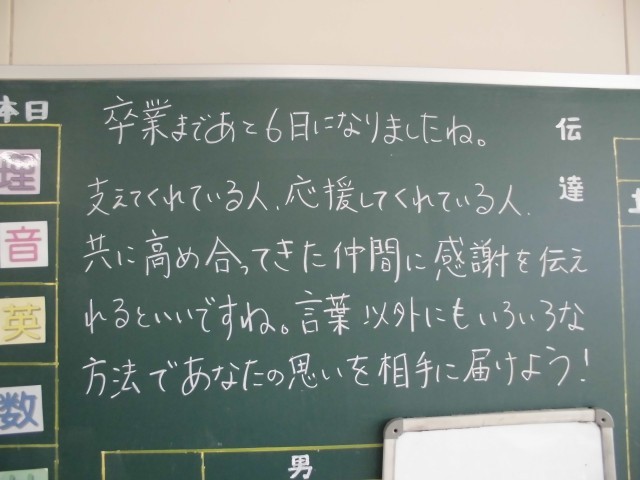 本日
理
音
英
数
卒業まであと6日になりましたね。
支えてくれている人、応援してくれている人、
共に高め合ってきた仲間に感謝を伝え
れるといいですね。言葉以外にもいろいろな
方法であなたの思いを相手に届けよう!
伝達
男